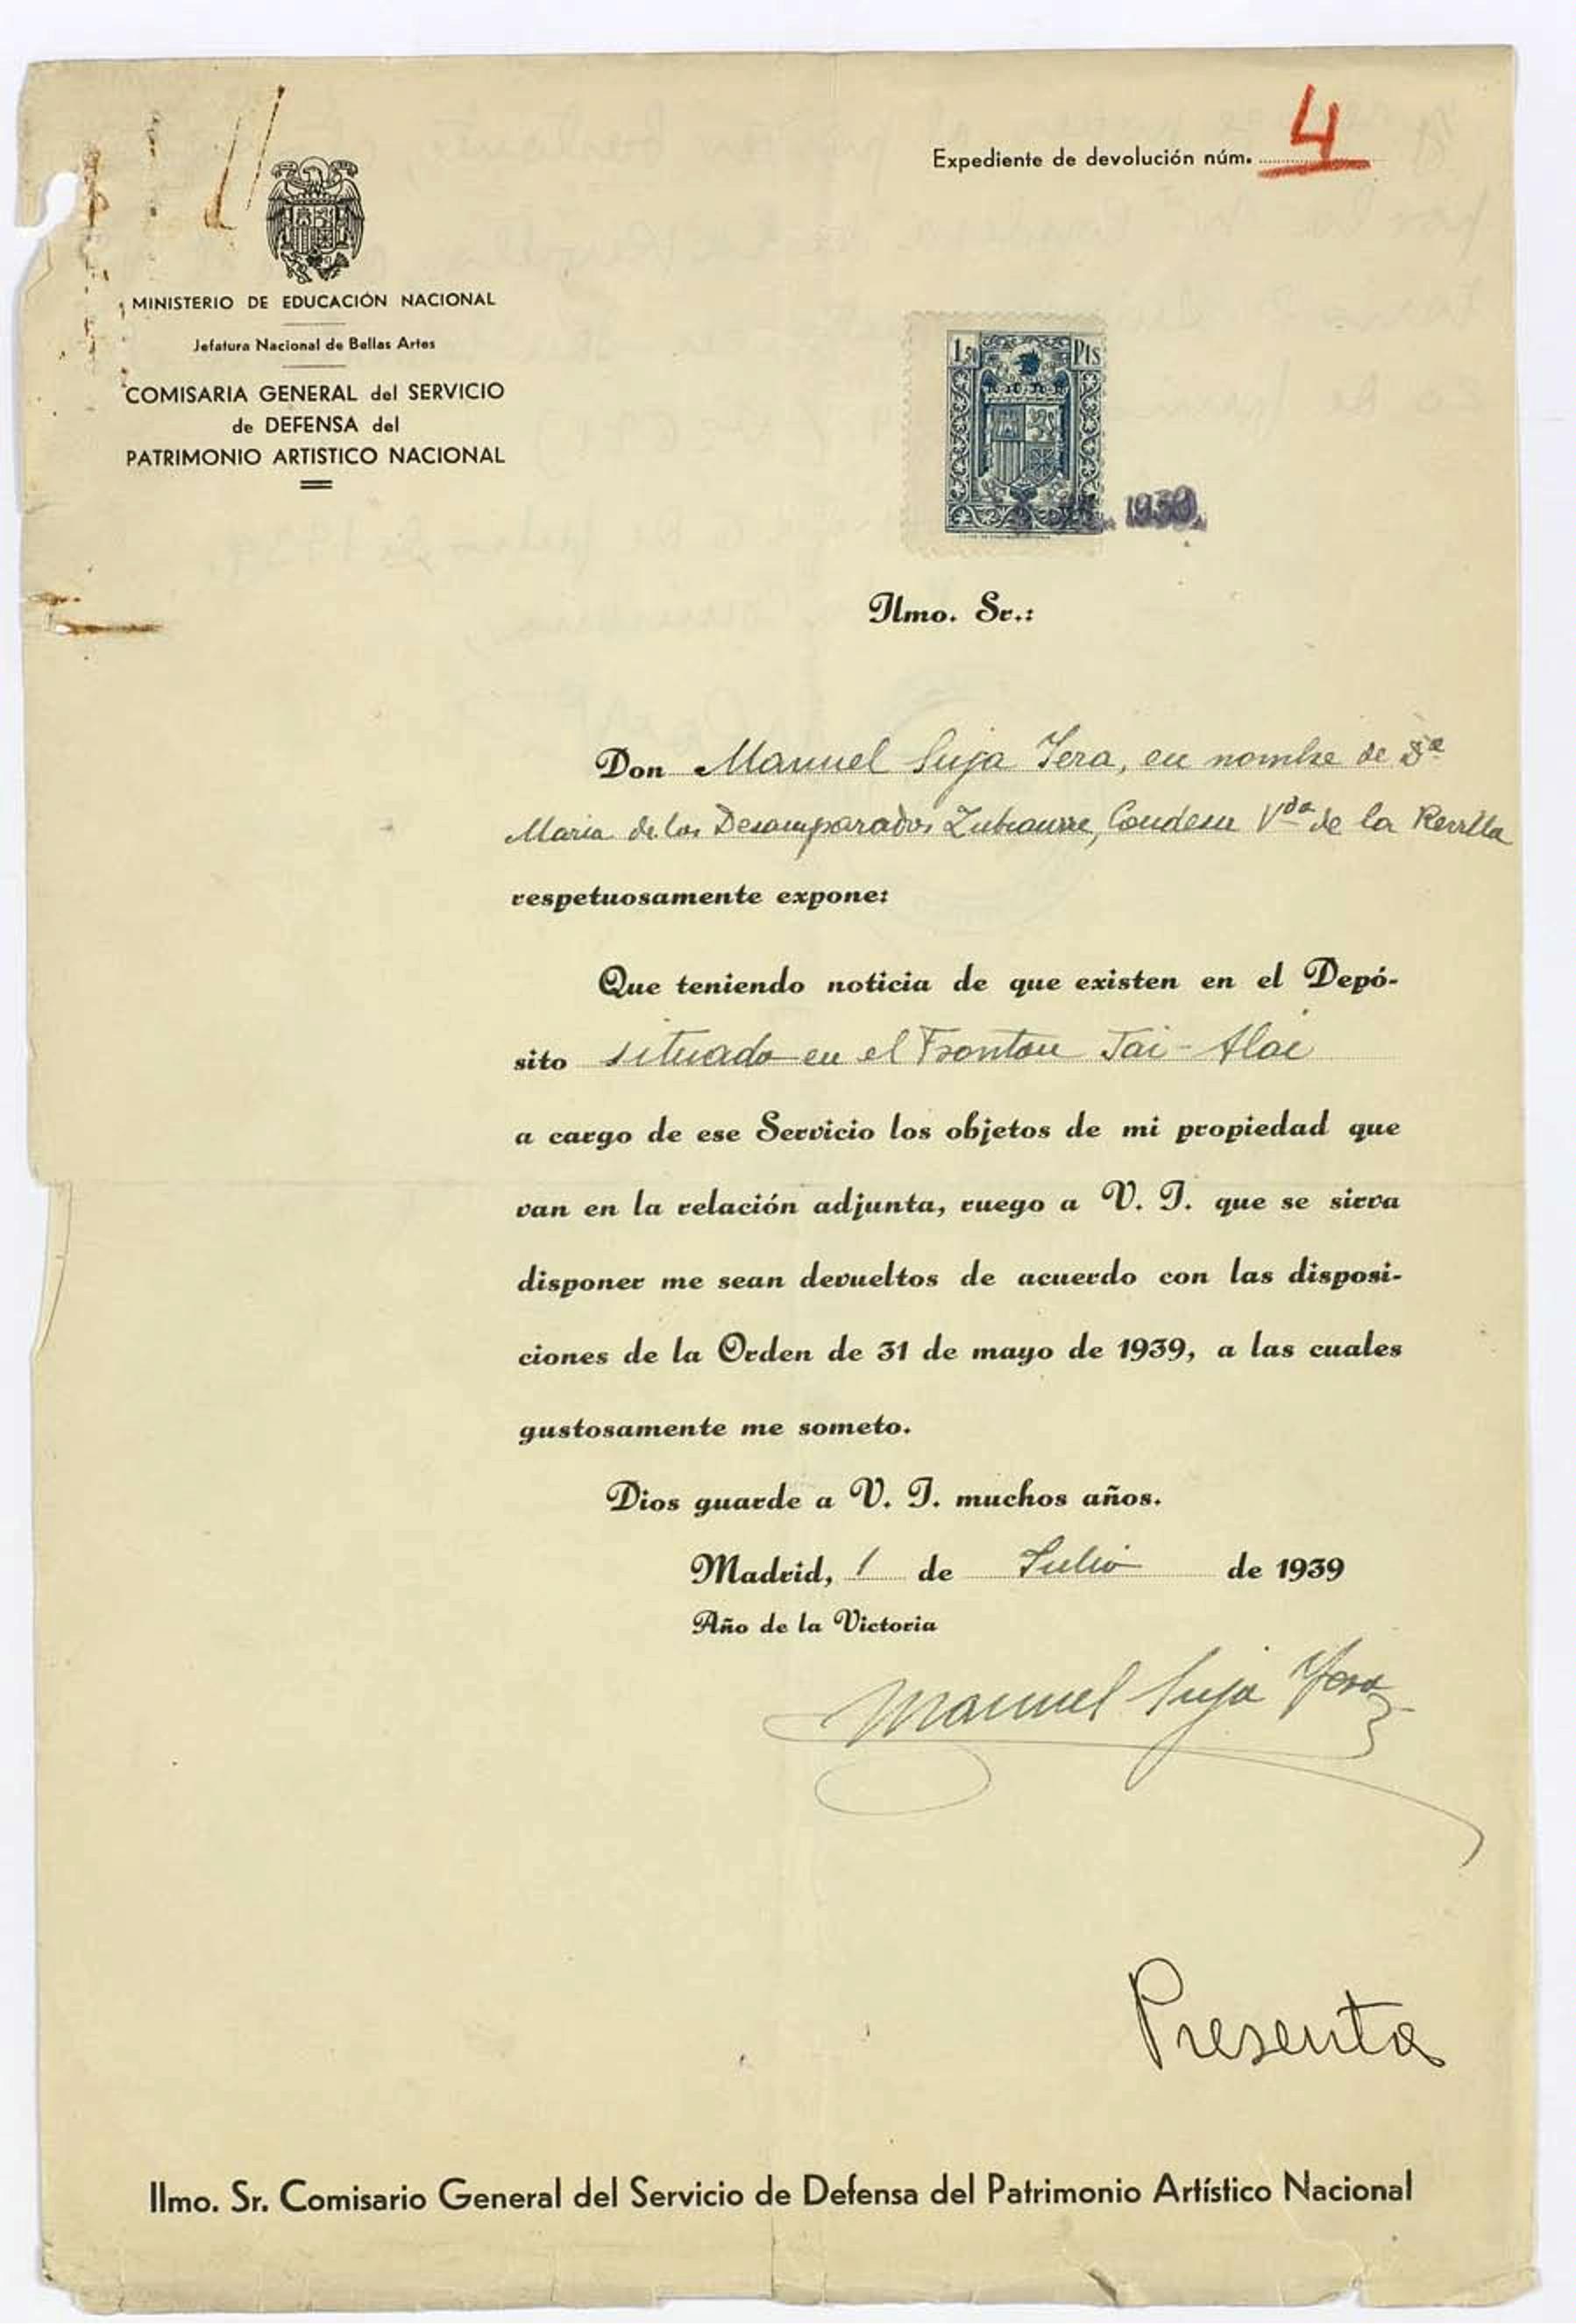 Expediente de devolución núm. 4
MINISTERIO DE EDUCACIÓN NACIONAL
Jefatura Nacional de Bellas Artes
COMISARIA GENERAL del SERVICIO
de DEFENSA del
PATRIMONIO ARTISTICO NACIONAL
1,50 Pts
1939.
Ilmo. Sr.:
Don Manuel Suja Yera, en nombre de Dª
Maria de los Desamparados Condesa Vda de la Revilla
respetuosamente expone:
Que teniendo noticia de que existen en el Depó-
sito situado en el Fronton Jai-Alai
a cargo de ese Servicio los objetos de mi propiedad que
van en la relación adjunta, ruego a V. I. que se sirva
disponer me sean devueltos de acuerdo con las disposi-
ciones de la Orden de 31 de mayo de 1939, a las cuales
gustosamente me someto.
Dios guarde a V. I. muchos años.
Madrid, 1 de Julio de 1939
Año de la Victoria
Manuel Suja Yera
Presenta
Ilmo. Sr. Comisario General del Servicio de Defensa del Patrimonio Artístico Nacional